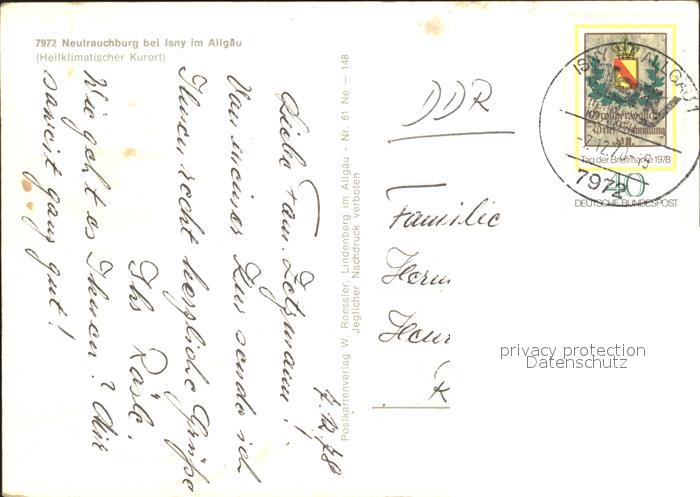 7972 Neutrauchburg bei Isny im Allgäu
(Heilklimatischer Kurort)
7.12.78
Liebe Fam. Lotzmann!
Von meiner Kur sende ich
Ihnen recht herzliche Grüße
Ihr Räsle.
Wie geht es Ihnen? Mir
soweit ganz gut!
Postkartenverlag W. Roessler, Lindenberg im Allgäu - Nr. 61 Ne — 148
Jeglicher Nachdruck verboten
DDR
Familie
Herm
Hein
R
ISNY IM ALLGÄU 1
7972
Großherzogliche
Brief-Sammlung
Tag der Briefmarke 1978
40
DEUTSCHE BUNDESPOST
privacy protection
Datenschutz